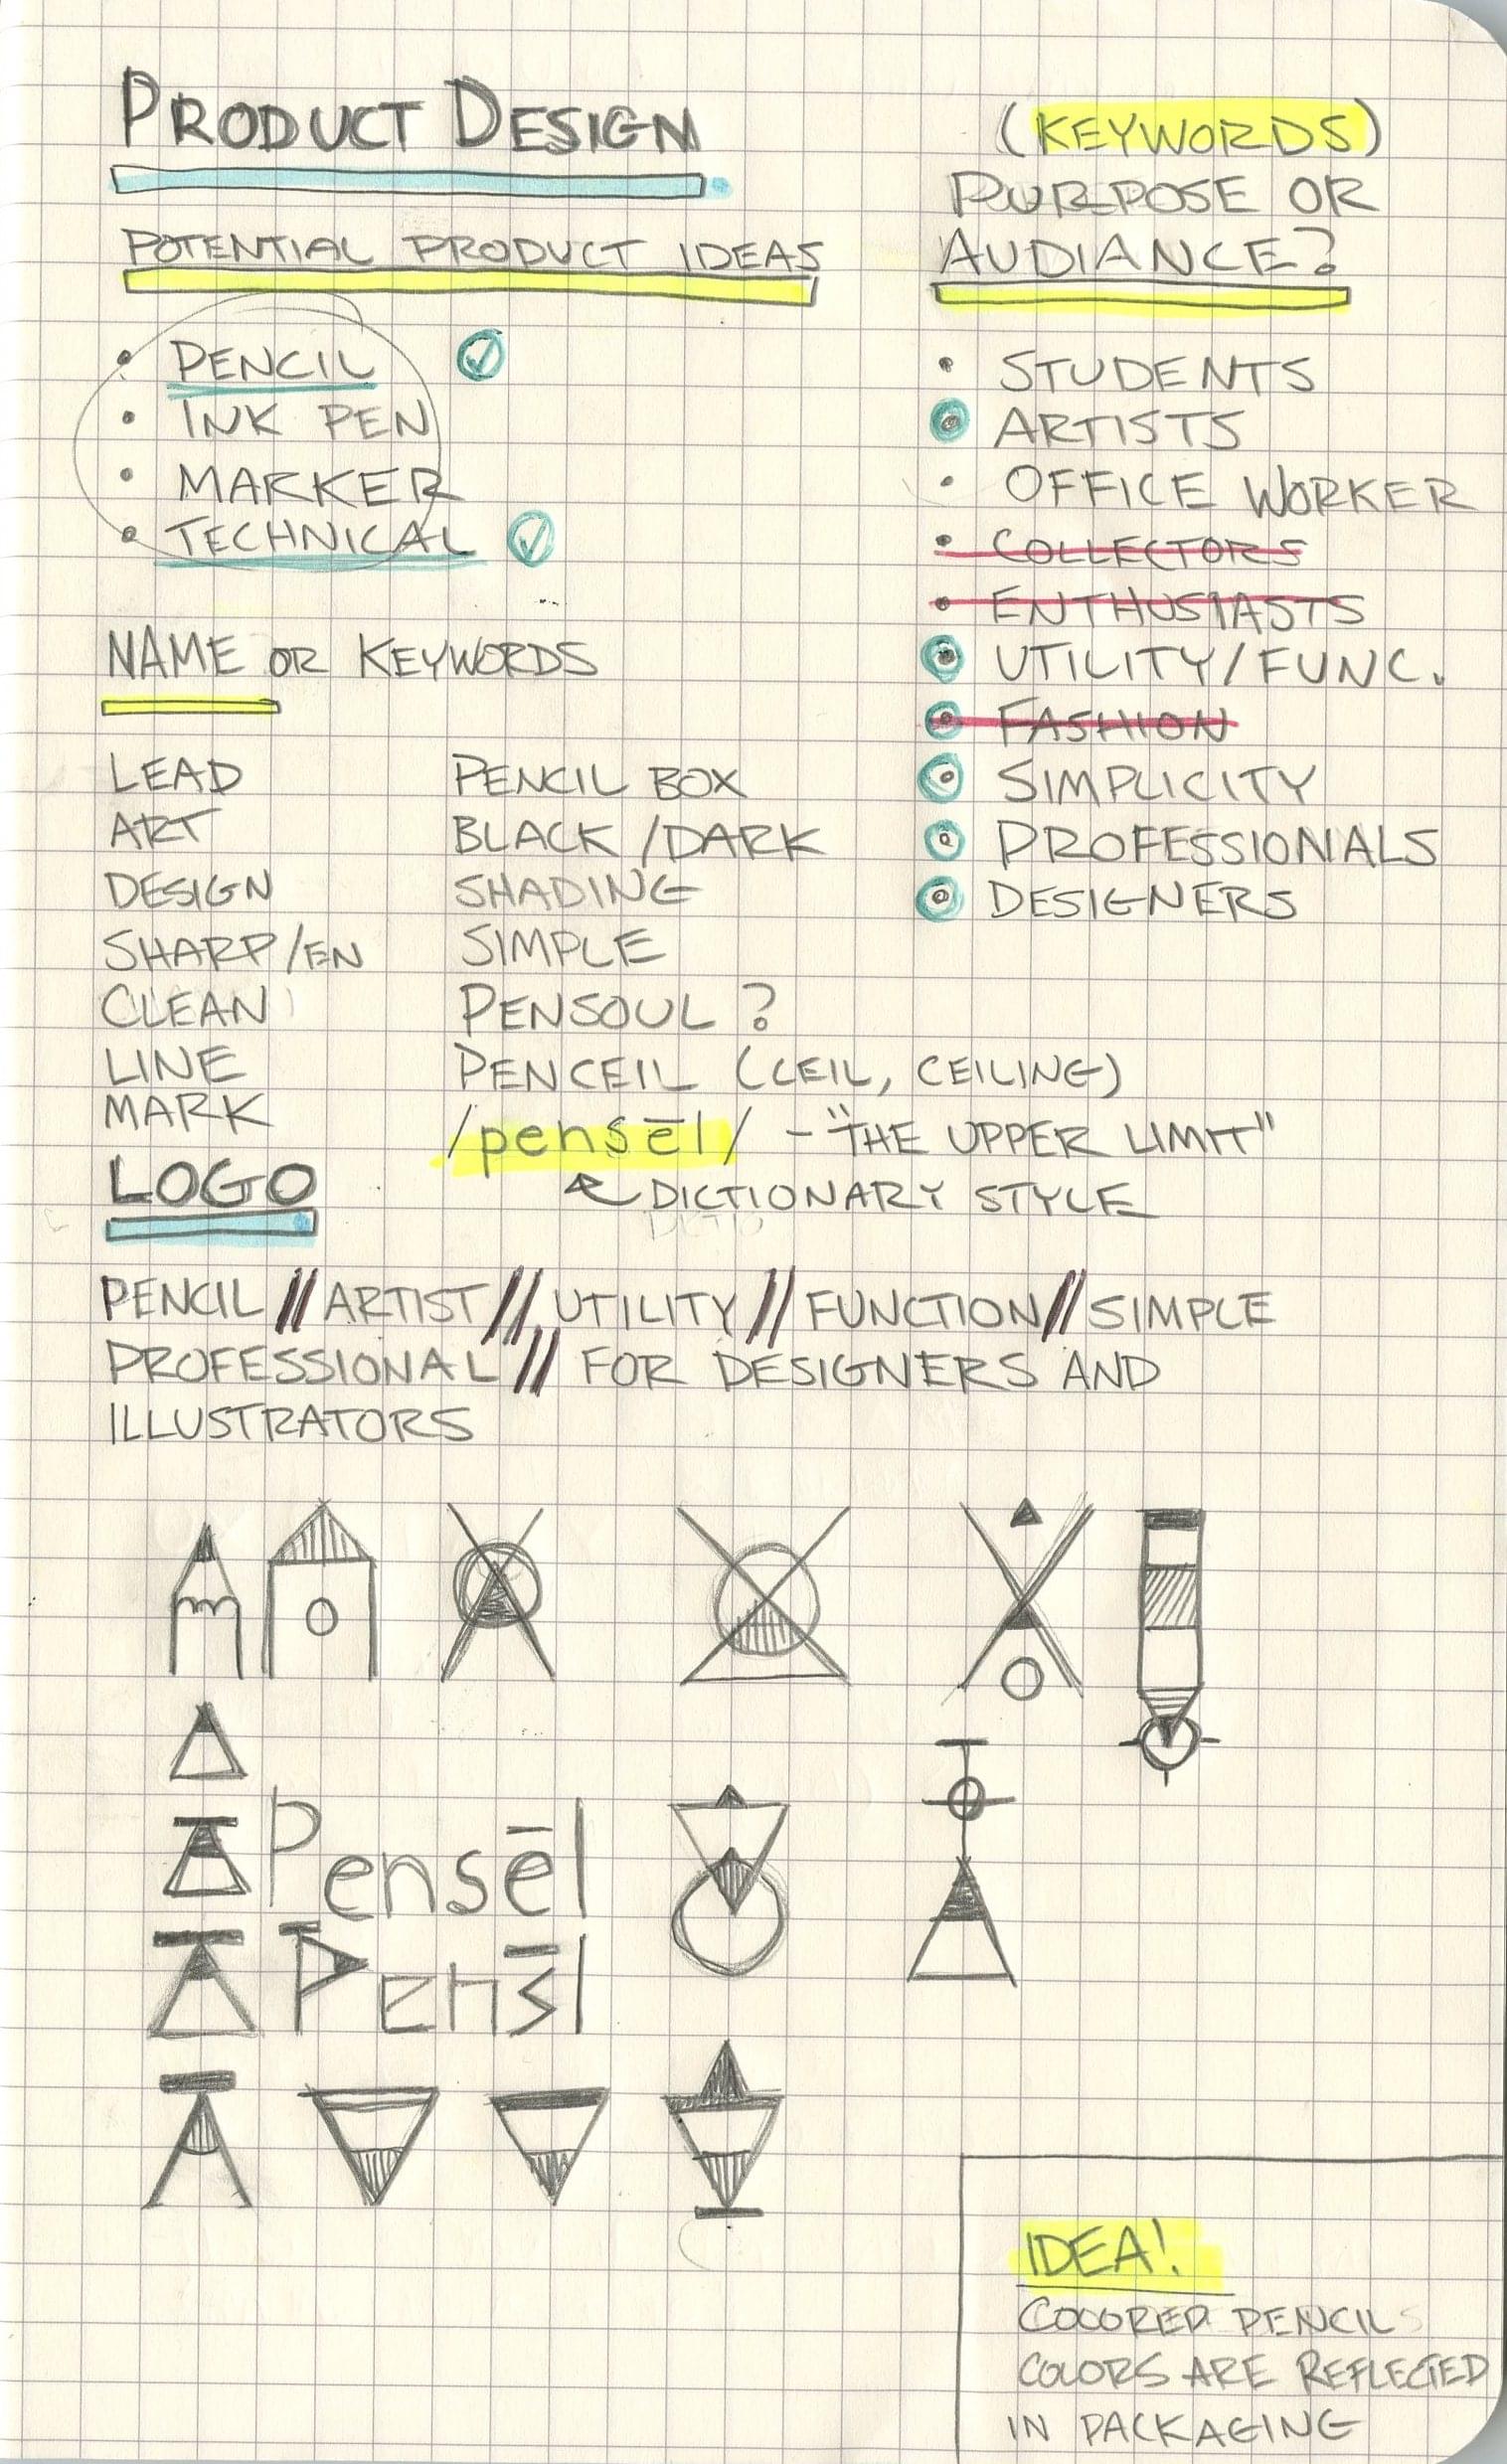 PRODUCT DESIGN
POTENTIAL PRODUCT IDEAS
• PENCIL
• INK PEN
• MARKER
• TECHNICAL
(KEYWORDS)
PURPOSE OR
AUDIANCE?
• STUDENTS
• ARTISTS
• OFFICE WORKER
• COLLECTORS
• ENTHUSIASTS
• UTILITY/FUNC.
• FASHION
• SIMPLICITY
• PROFESSIONALS
• DESIGNERS
NAME OR KEYWORDS
LEAD
ART
DESIGN
SHARP/EN
CLEAN
LINE
MARK
PENCIL BOX
BLACK/DARK
SHADING
SIMPLE
PENSOUL?
PENCEIL (CEIL, CEILING)
/pensēl/ - "THE UPPER LIMIT"
DICTIONARY STYLE
LOGO
PENCIL // ARTIST // UTILITY // FUNCTION // SIMPLE
PROFESSIONAL // FOR DESIGNERS AND
ILLUSTRATORS
Pensēl
Pens̄l
IDEA!
COLORED PENCILS
COLORS ARE REFLECTED
IN PACKAGING